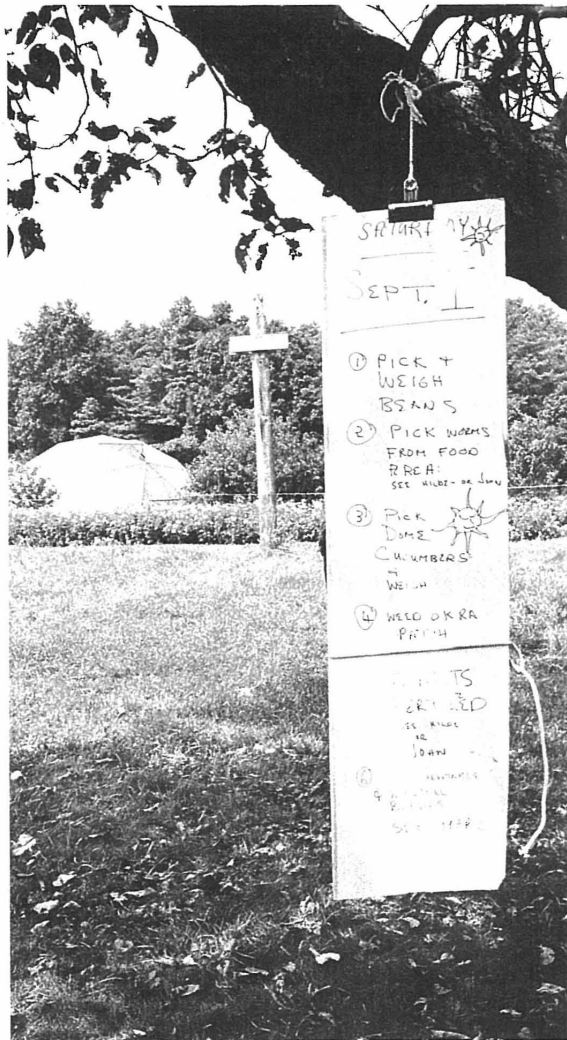 SATURDAY
SEPT. 1
① PICK +
WEIGH
BEANS
② PICK WORMS
FROM FOOD
AREA:
SEE HILDE- OR JOAN
③ PICK
DOME
CUCUMBERS
+
WEIGH
④ WEED OKRA
PATCH
SEE HILDE
OR
JOAN
⑥
&
SEE